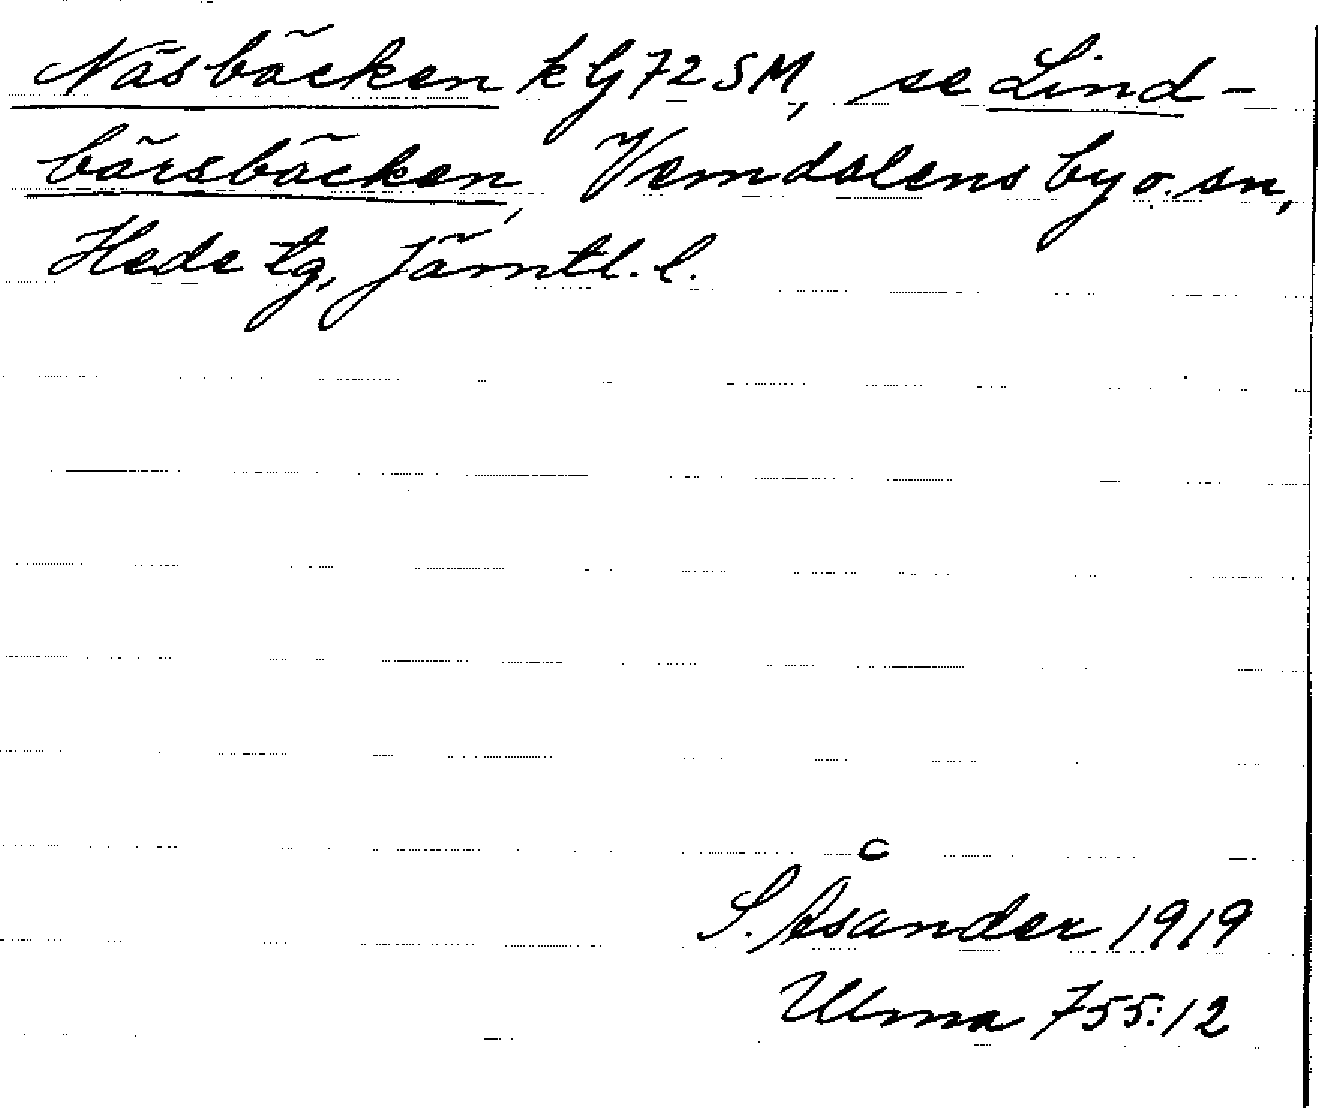 Näsbäcken k G 72 SM, se Lind-
bärsbäcken, Vemdalens by o. sn,
Hede tg, Jämtl. l.
S. Åsander 1919
Ulma 755:12